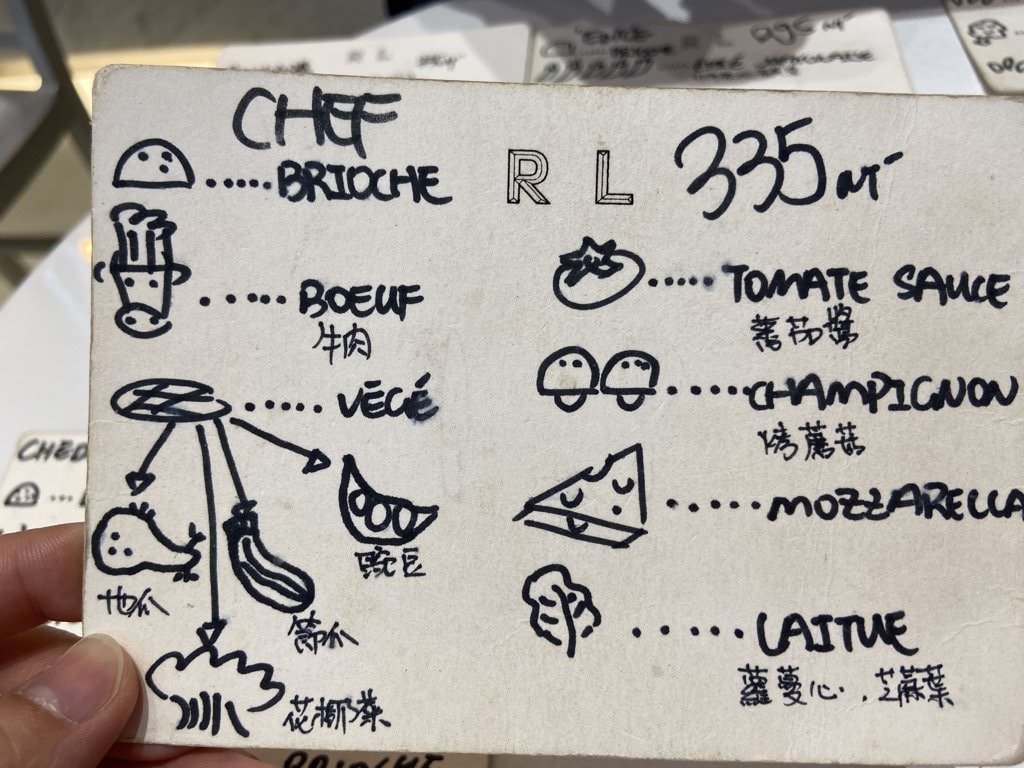 CHEF
RL
335 NT
BRIOCHE
BOEUF
牛肉
VÉGÉ
豌豆
地瓜
節瓜
花椰菜
TOMATE SAUCE
蕃茄醬
CHAMPIGNON
烤蘑菇
MOZZARELLA
LAITUE
蘿蔓心．芝麻葉
RL
CHED
BRIOCHE